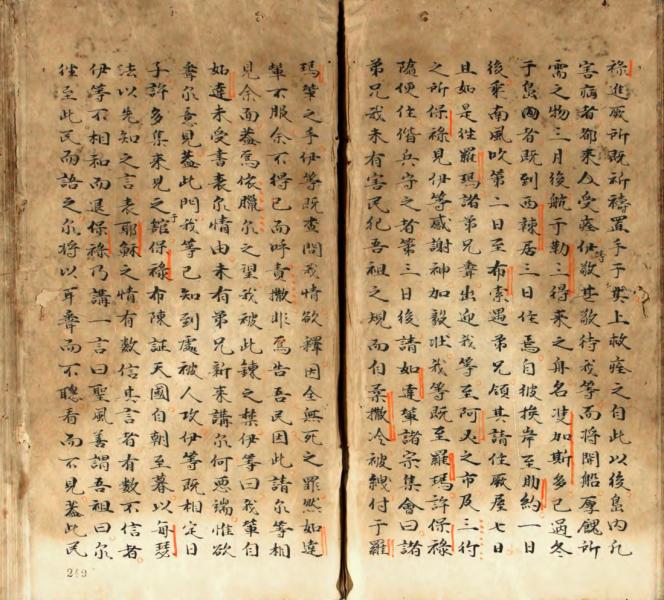 祿進厥所既祈禱置手于其上救痊之自此以後島內凡
害病者都來受痊伊等敬甚敬待我等而將開船厚餽所
需之物三月後航于勒三得來之舟名加斯多已過冬
于島內者既到西辣居三日住焉自彼換岸至助約一日
後乘南風吹第二日至布索遇弟兄領其請住厥屋七日
且如是徃羅瑪諸弟兄聋出迎我等至阿之市及三行
之所保祿見伊等感謝神加毅壯我等既至羅瑪許保祿
隨便住偕兵守之者第三日後請如達輩諸宗集會曰諸
弟兄我未有害民犯吾祖之規而自柔撒冷被綑付于羅
瑪輩之手伊等既查問我情欲釋因全無死之罪然如達
輩不服余不得已而呼責撒非焉告吾民因此請尔等相
見余而葢為依臘尔之望我被此鍊之禁伊等曰我輩自
如達未受書表尔情由未有弟兄新來講尔何悪端惟欲
聋尔意見葢此門我等已知到處被人攻伊等既相定日
子許多集來見之于館保祿布陳証天國自朝至暮以每瑟
法以先知之言表耶穌之情有數信其言者有數不信者
伊等不相和而退保祿乃講一言曰聖風善謂吾祖曰尔
徃至此民而語之尔將以耳聋而不聽看而不見葢此民
249